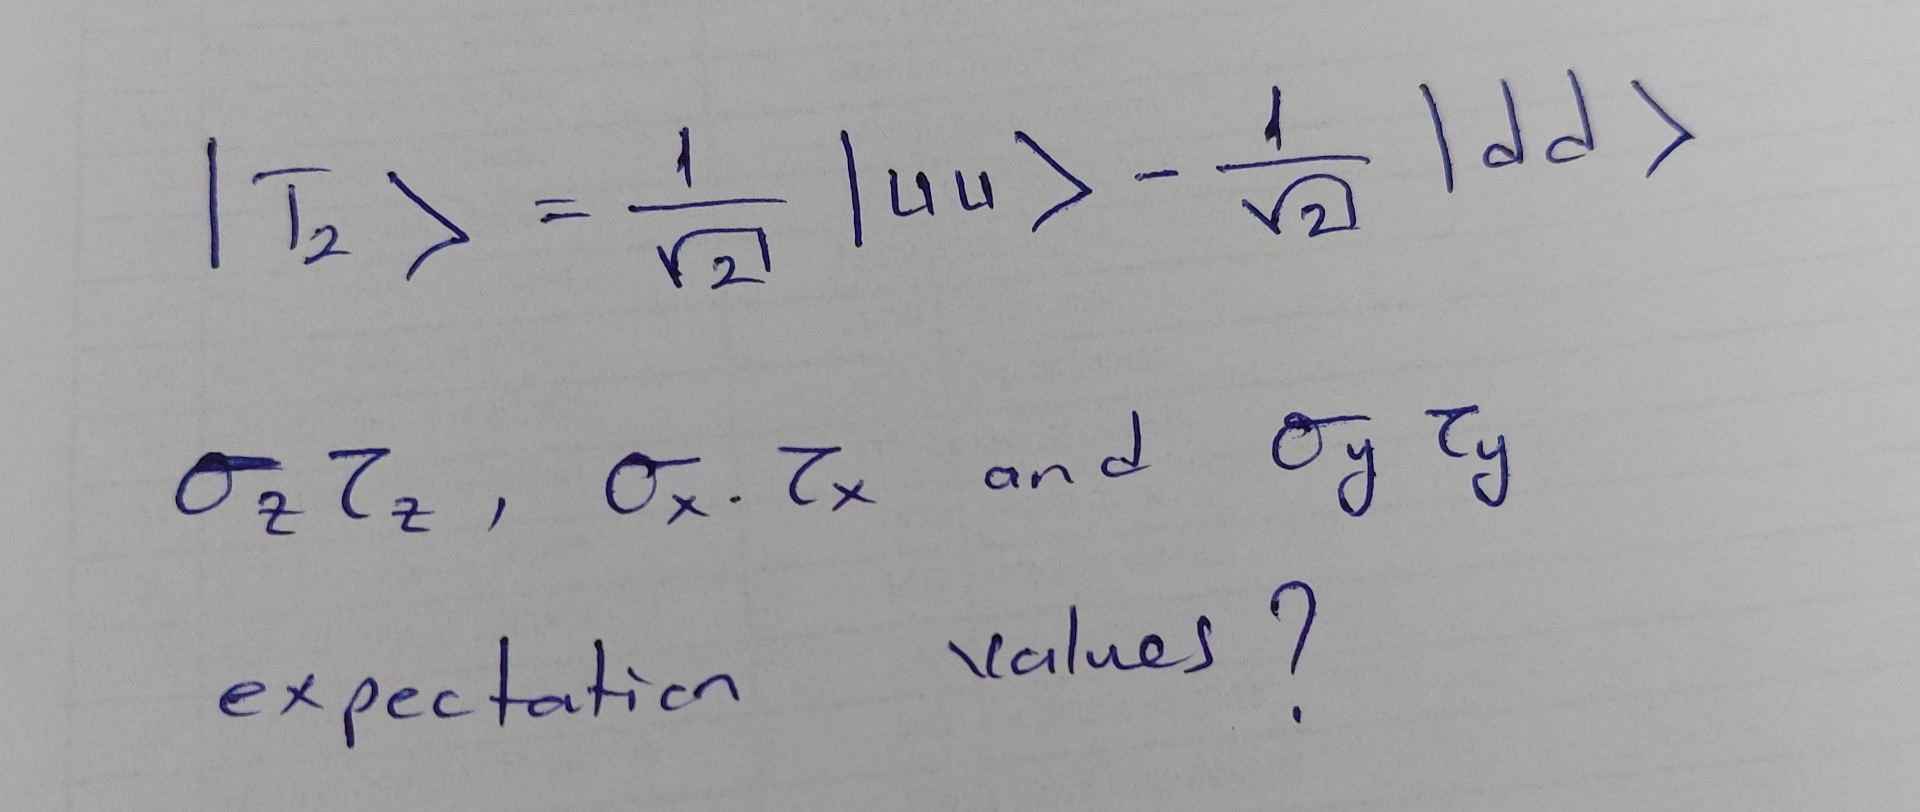 |T₂> = 1/√2 |uu> - 1/√2 |dd>
σz τz, σx. τx and σy τy
expectation values?